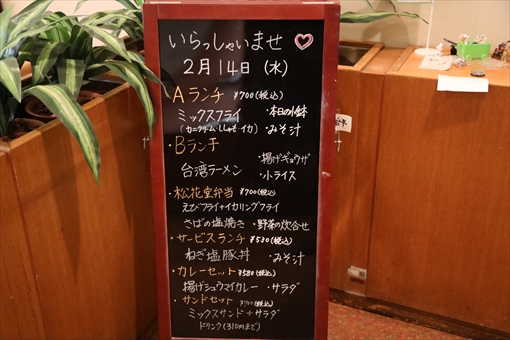 いらっしゃいませ♡
2月14日(水)
Aランチ ¥700(税込)
ミックスフライ ・本日の小鉢
(カニクリーム・ししゃも・イカ) ・みそ汁
・Bランチ
台湾ラーメン ・揚げギョウザ
・小ライス
・松花堂弁当 ¥700(税込)
えびフライ+イカリングフライ
さばの塩焼き・野菜の炊合せ
・サービスランチ ¥530(税込)
ねぎ塩豚丼 ・みそ汁
・カレーセット ¥580(税込)
揚げシュウマイカレー・サラダ
・サンドセット ¥700(税込)
ミックスサンド+サラダ
ドリンク(310円まで)